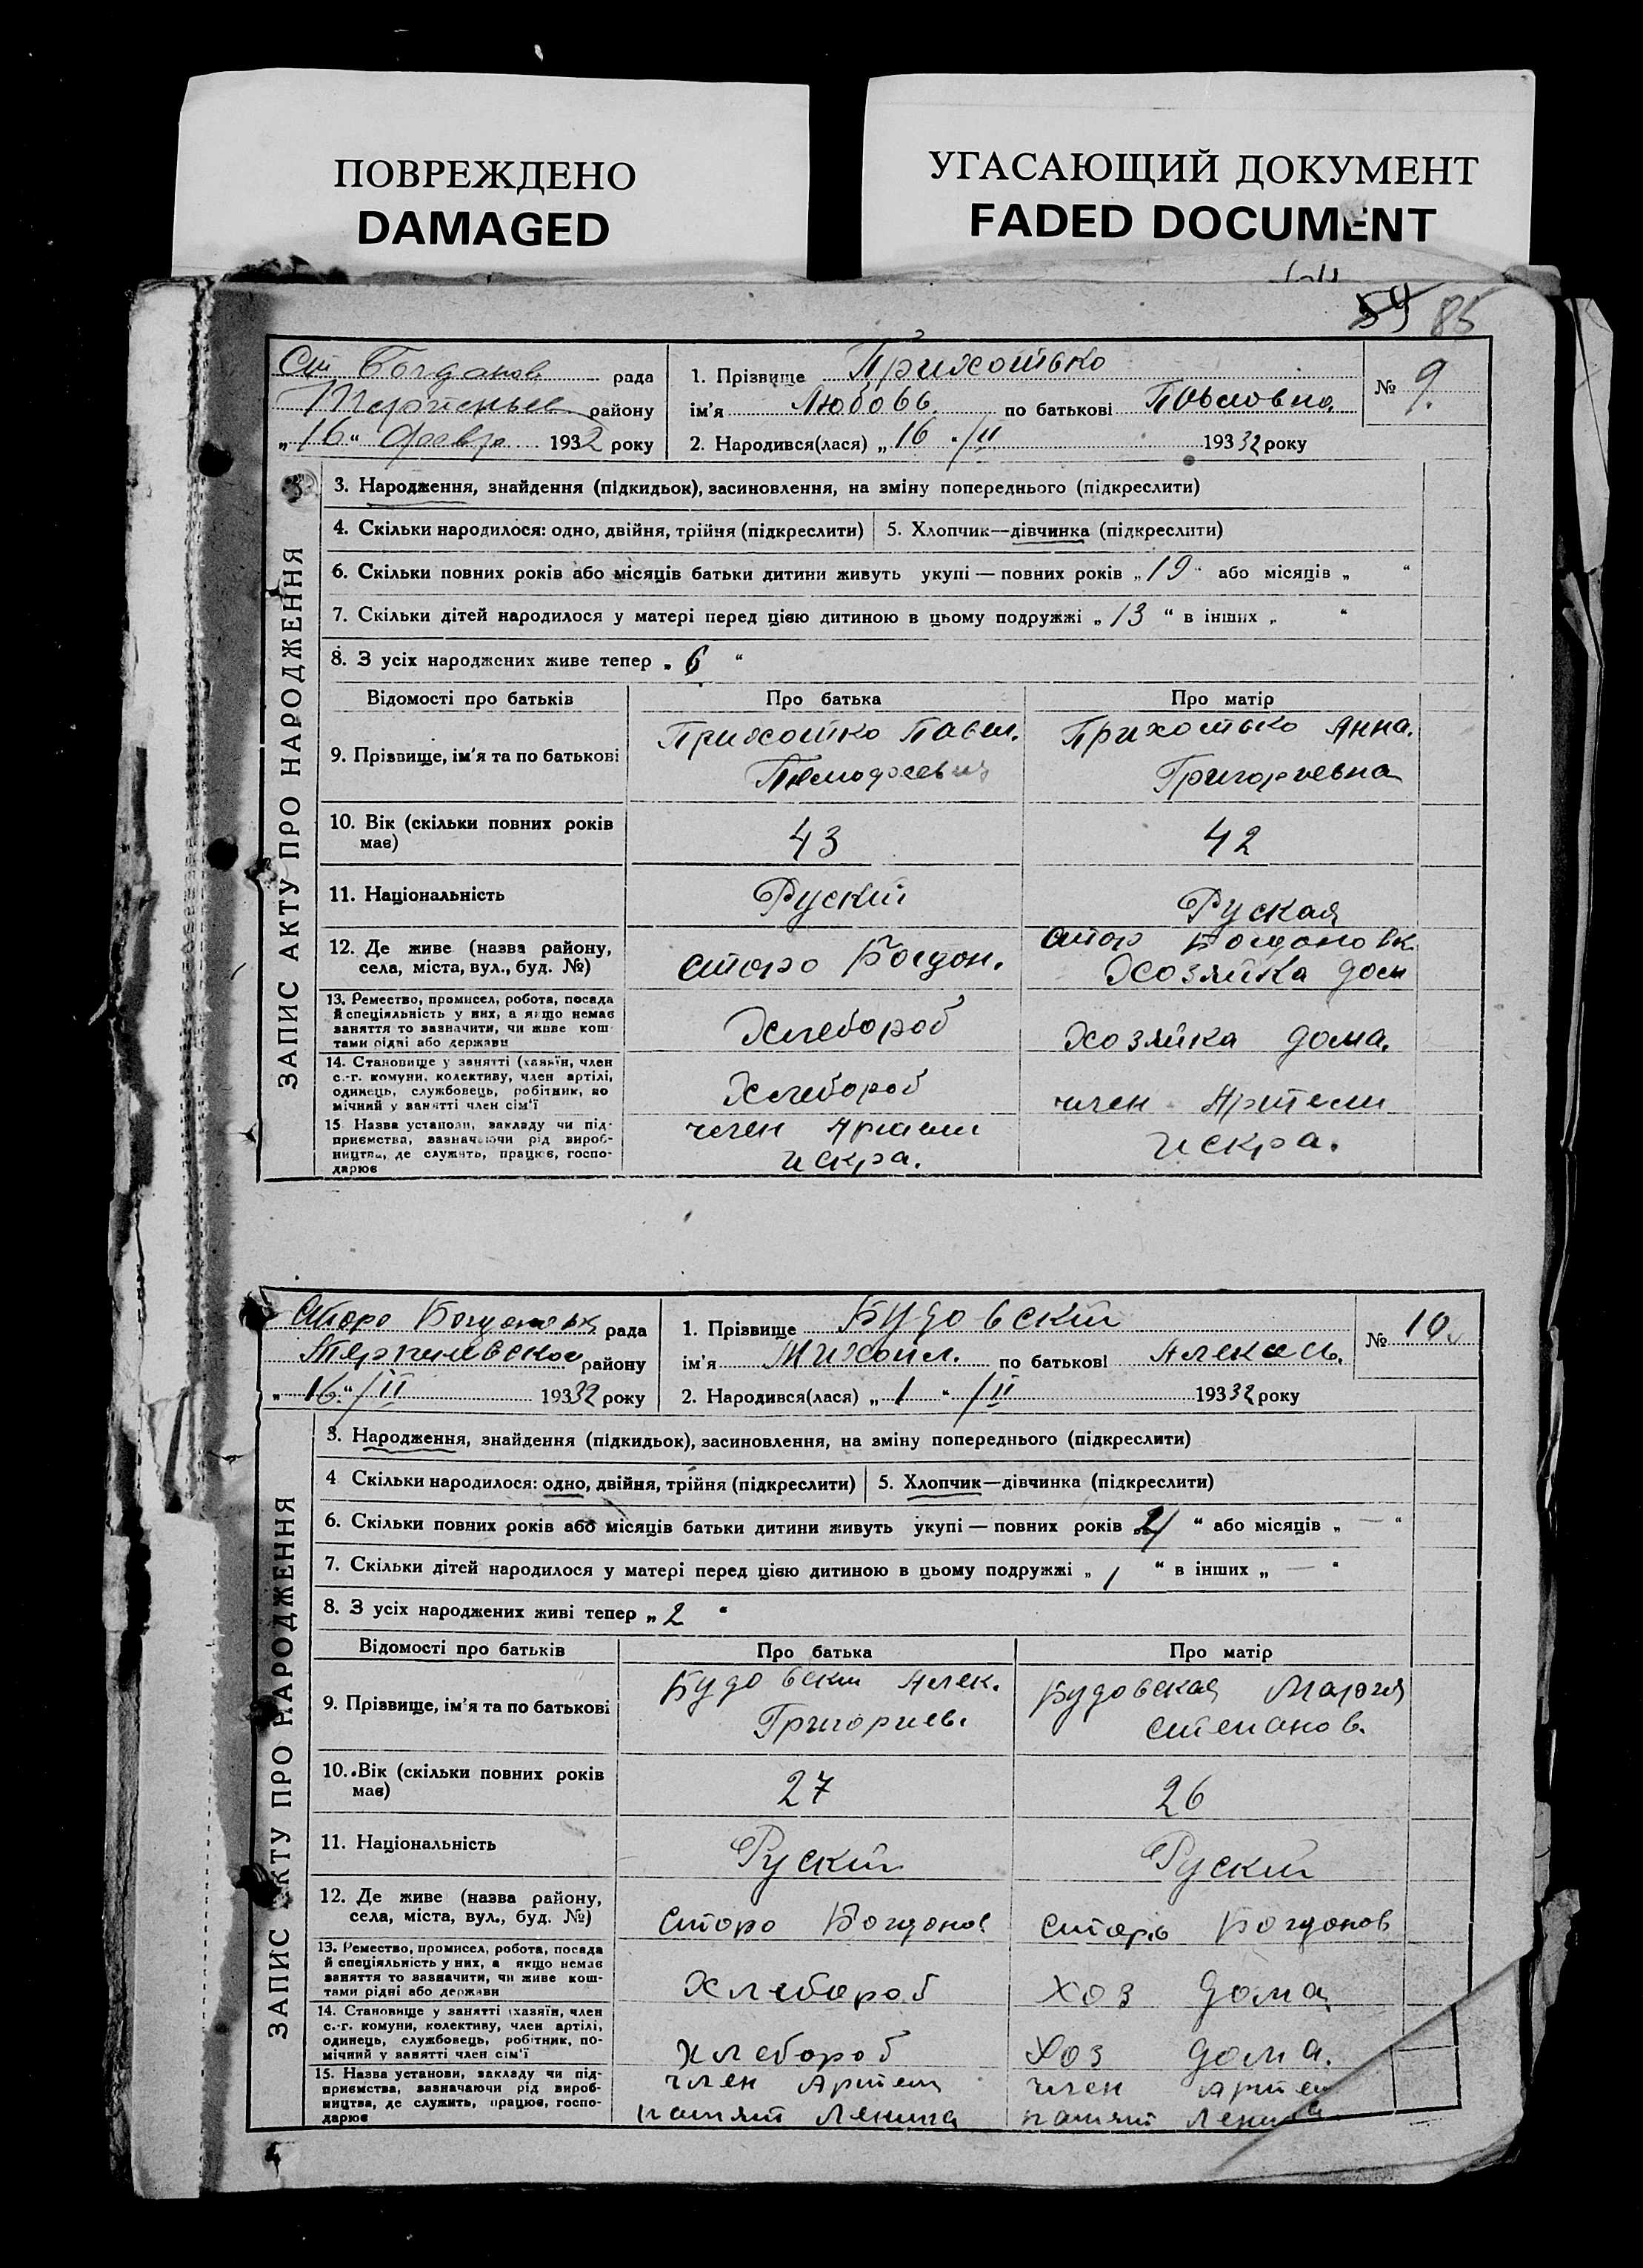 ПОВРЕЖДЕНО
DAMAGED
УГАСАЮЩИЙ ДОКУМЕНТ
FADED DOCUMENT
54 85
ЗАПИС АКТУ ПРО НАРОДЖЕННЯ
Ст Богданов рада
району
„16“ Февр 1932 року
1. Прізвище Прихотько
ім'я Любовь по батькові Павловна
2. Народився(лася) „16“/II 1932 року
№ 9.
3. Народження, знайдення (підкидьок), засиновлення, на зміну попереднього (підкреслити)
4. Скільки народилося: одно, двійня, трійня (підкреслити) 5. Хлопчик—дівчинка (підкреслити)
6. Скільки повних років або місяців батьки дитини живуть укупі — повних років „19“ або місяців „ “
7. Скільки дітей народилося у матері перед цією дитиною в цьому подружжі „13“ в інших „ “
8. З усіх народжених живе тепер „6“
Відомості про батьків Про батька Про матір
9. Прізвище, ім'я та по батькові
Прихотко Павел.
Прихотько Анна.
Григорьевна
10. Вік (скільки повних років
має)
43 42
11. Національність Руский Руская
12. Де живе (назва району,
села, міста, вул., буд. №)
старо Богдон.
стар Богдановк
Хозяйка дом
13. Ремество, промисел, робота, посада
й спеціяльність у них, а якщо немає
заняття то зазначити, чи живе кош-
тами рідні або держави
Хлебороб Хозяйка дома.
14. Становище у занятті (хазяїн, член
с.-г. комуни, колективу, член артілі,
одинець, службовець, робітник, по
мічний у занятті член сім'ї
Хлебороб член Артели
15 Назва установи, закладу чи під-
приємства, зазначаючи рід вироб-
ництва, де служить, працює, госпо-
дарює
член Артели
искра.
искра.
ЗАПИС АКТУ ПРО НАРОДЖЕННЯ
Старо Богдановк рада
Терпенивской району
„16“/II 1932 року
1. Прізвище Будовский
ім'я Михаил. по батькові
2. Народився(лася) „1“/II 1932 року
№ 10.
3. Народження, знайдення (підкидьок), засиновлення, на зміну попереднього (підкреслити)
4 Скільки народилося: одно, двійня, трійня (підкреслити) 5. Хлопчик—дівчинка (підкреслити)
6. Скільки повних років або місяців батьки дитини живуть укупі — повних років „ “ або місяців „ — “
7. Скільки дітей народилося у матері перед цією дитиною в цьому подружжі „1“ в інших „ — “
8. З усіх народжених живі тепер „2“
Відомості про батьків Про батька Про матір
9. Прізвище, ім'я та по батькові
Будовский Алек.
Григориев.
Будовская Мария
степанов.
10. Вік (скільки повних років
має)
27 26
11. Національність Руский Руский
12. Де живе (назва району,
села, міста, вул., буд. №)
старо Богданов старо Богданов
13. Ремество, промисел, робота, посада
й спеціяльність у них, а якщо немає
заняття то зазначити, чи живе кош-
тами рідні або держави
Хлебороб Хоз дома
14. Становище у занятті (хазяїн, член
с.-г. комуни, колективу, член артілі,
одинець, службовець, робітник, по-
мічний у занятті член сім'ї
Хлебороб Хоз дома.
15. Назва установи, закладу чи під-
приємства, зазначаючи рід вироб-
ництва, де служить, працює, госпо-
дарює
член Артели
памят Ленина
член Артел
памят Ленина